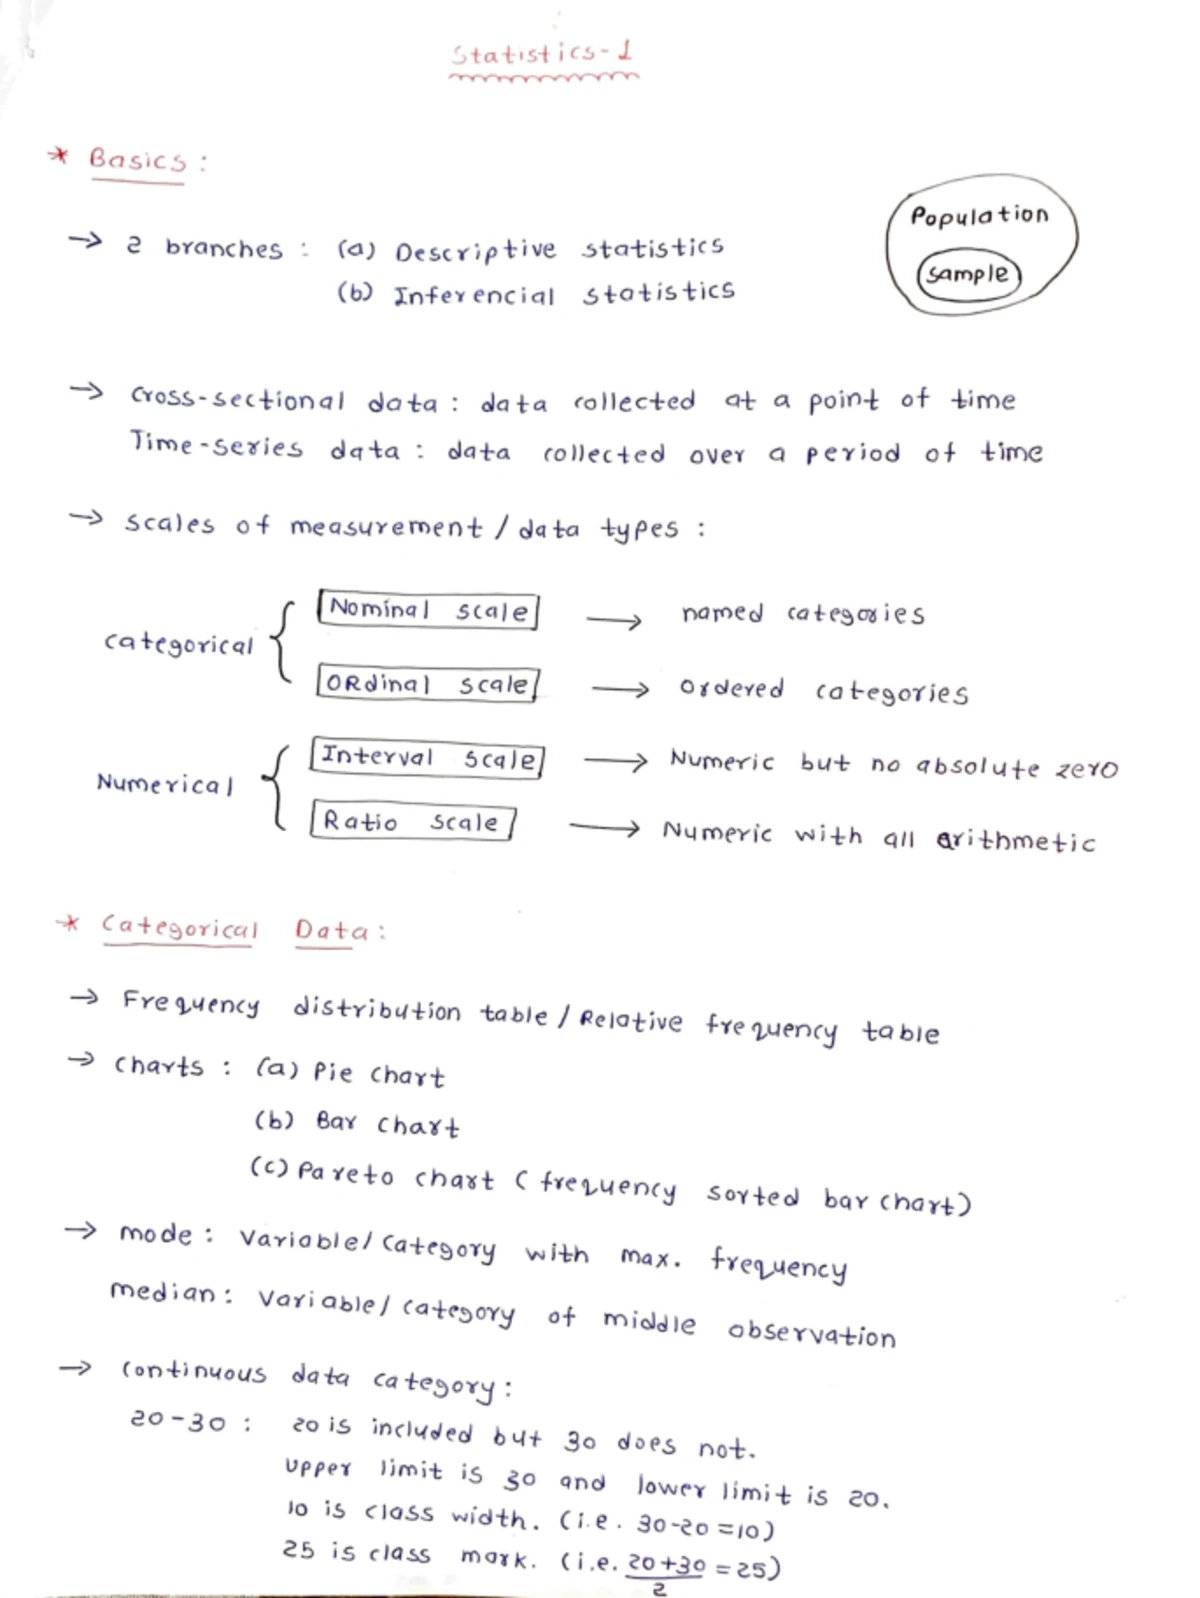 Statistics-1
* Basics :
→ 2 branches : (a) Descriptive statistics
(b) Inferencial statistics
Population
sample
→ Cross-sectional data : data collected at a point of time
Time-series data : data collected over a period of time
→ scales of measurement / data types :
categorical { Nominal scale → named categories
ORdinal scale → ordered categories
Numerical { Interval scale → Numeric but no absolute zero
Ratio scale → Numeric with all arithmetic
* Categorical Data :
→ Frequency distribution table / Relative frequency table
→ charts : (a) Pie chart
(b) Bar chart
(c) Pareto chart ( frequency sorted bar chart)
→ mode : Variable/ Category with max. frequency
median : Variable/ category of middle observation
→ continuous data category :
20-30 : 20 is included but 30 does not.
Upper limit is 30 and lower limit is 20.
10 is class width. (i.e. 30-20 =10)
25 is class mark. (i.e. 20+30/2 = 25)